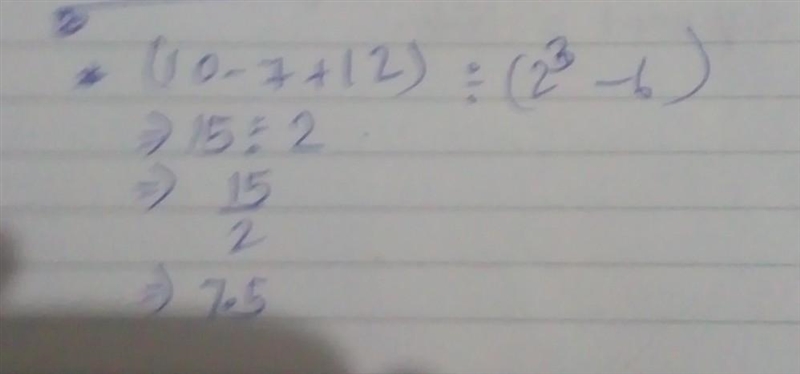 * (10 - 7 + 12) ÷ (2³ - 6)
⇒ 15 ÷ 2
⇒ 15/2
⇒ 7.5